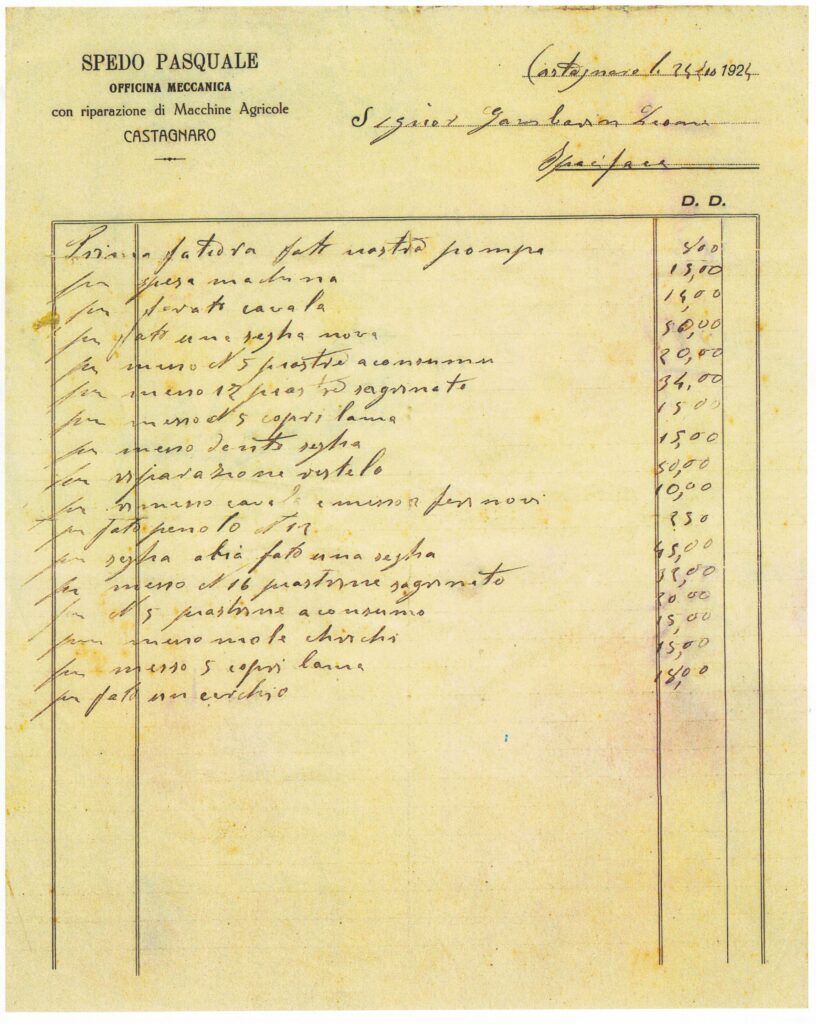 SPEDO PASQUALE
OFFICINA MECCANICA
con riparazione di Macchine Agricole
CASTAGNARO
Castagnaro li 24 1924
Signor Gambarin Leone
D. D.
Prima fatura fato pompa 500
per spesa machina 15,00
per ferato cavala 14,00
per fato una segha nova 50,00
per messo N 5 piastre a consumo 20,00
per messo 12 piastre sagrinato 34,00
per messo N 5 copri lama 15 00
per messo dente segha 15,00
per riparazione restelo 50,00
per rimesso cavala e messo 2 feri novi 10,00
per fato N 12 250
per segha fato una segha 45,00
per messo N 16 piastrine sagrinato 32,00
per N 5 piastrine a consumo 20 00
per messo mole 15,00
per messo 5 copri lama 15,00
per fato un cerchio 18,00